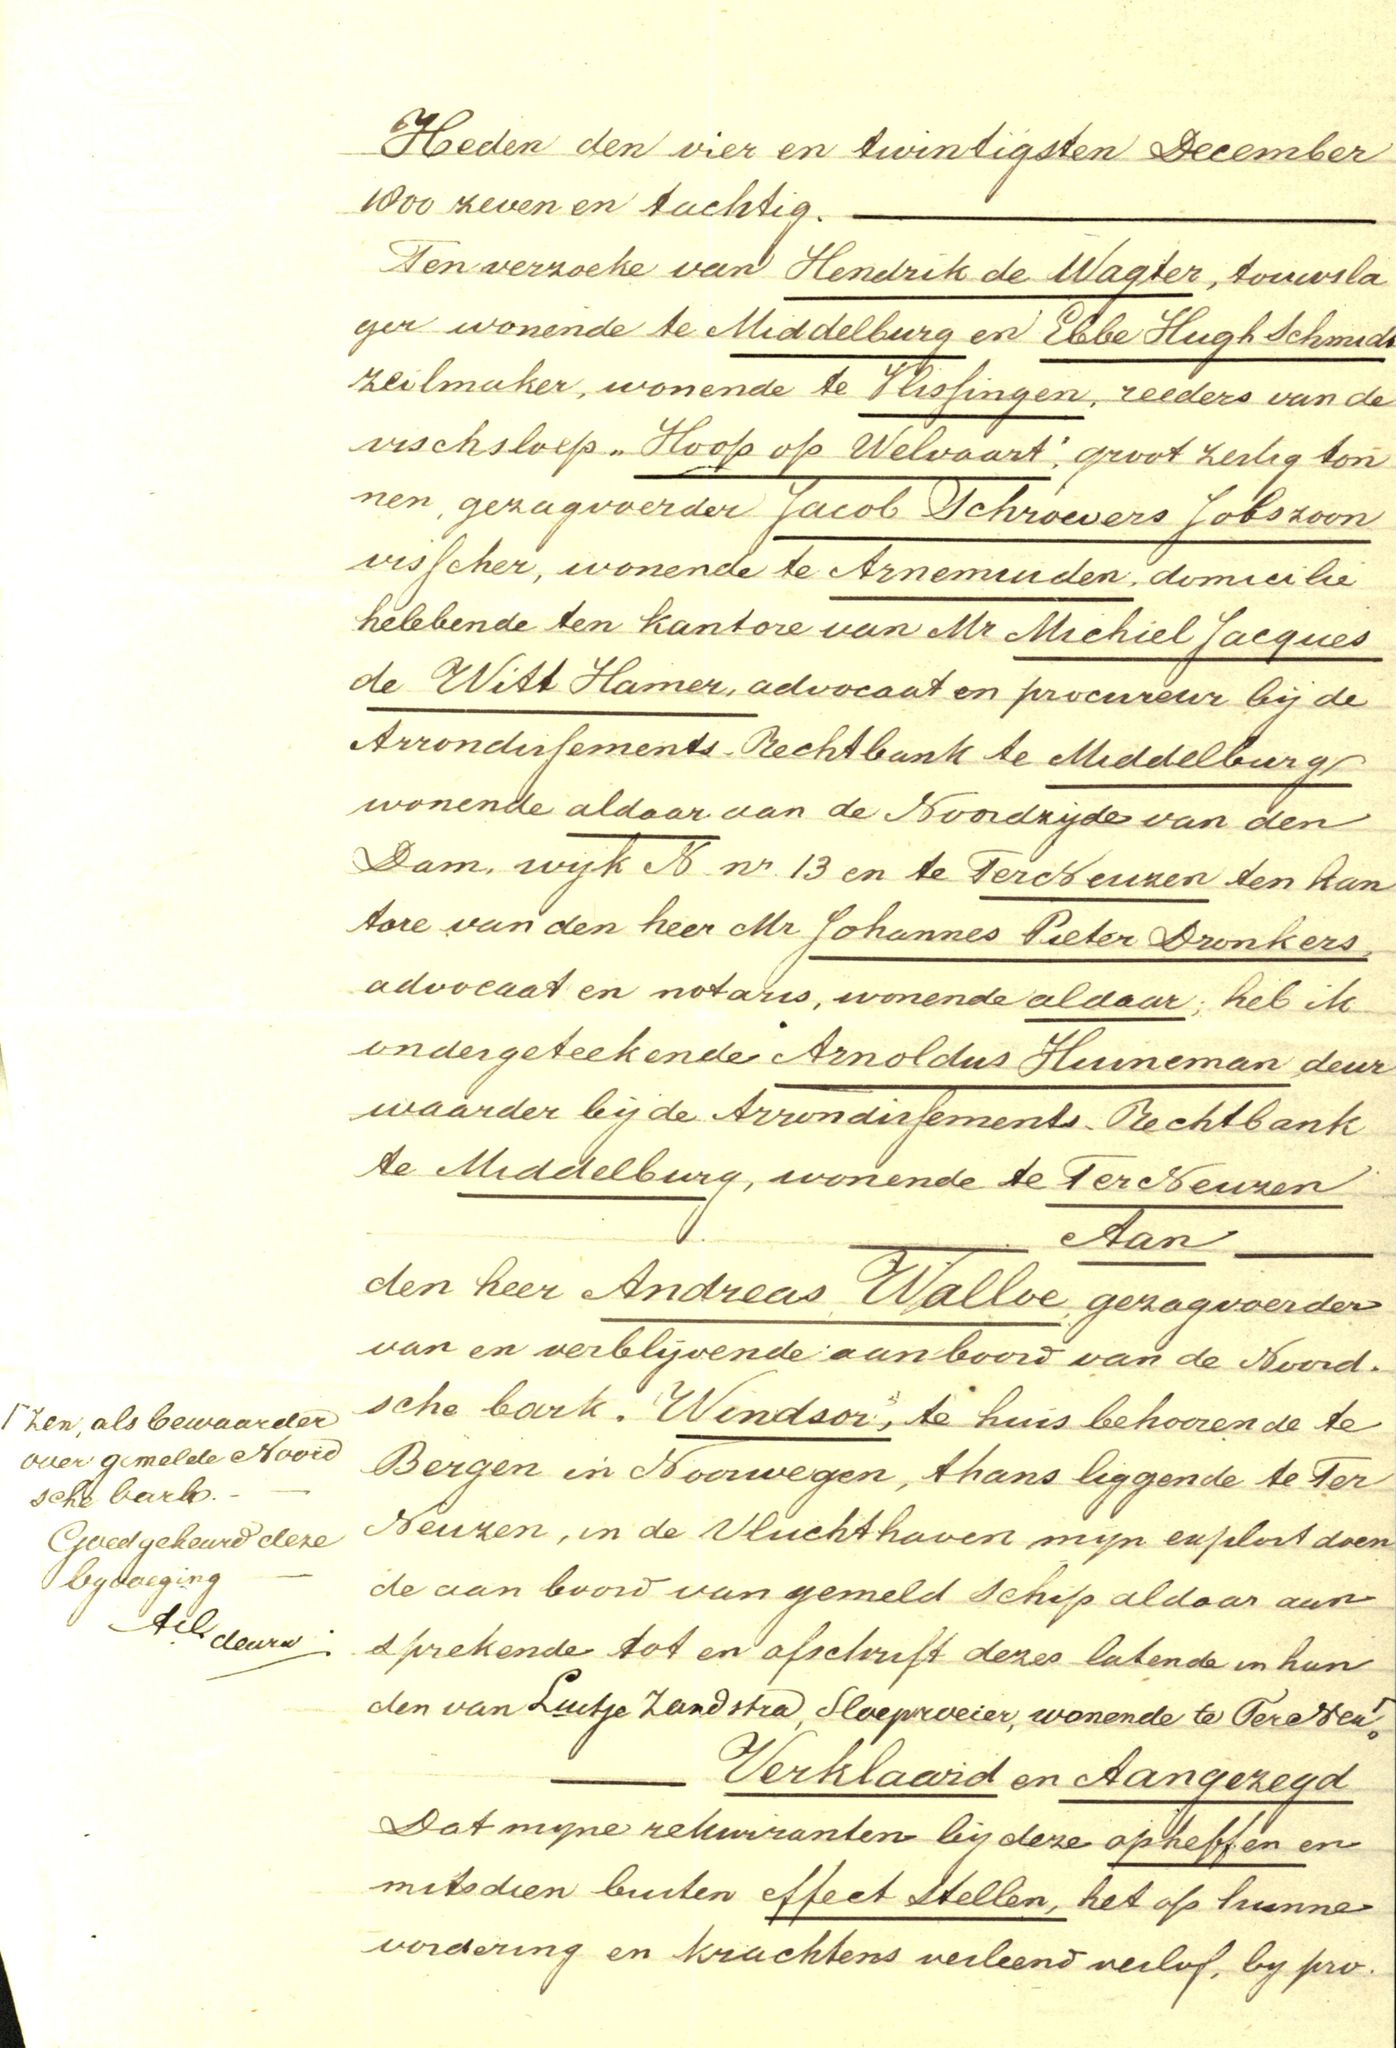 Heden den vier en twintigsten December
1800 zeven en tachtig.
Ten verzoeke van Hendrik de Wagter, touwsla
ger wonende te Middelburg en Ebbe Hugh Schmidt
zeilmaker, wonende te Vlissingen, reeders van de
vischsloep „Hoop op Welvaart", groot zestig ton
nen, gezagvoerder Jacob Schroevers Jobszoon
visscher, wonende te Arnemuiden, domicilie
hebbende ten kantore van Mr Michiel Jacques
de Witt Hamer, advocaat en procureur bij de
Arrondissements-Rechtbank te Middelburg
wonende aldaar aan de Noordzijde van den
Dam, wijk N nr. 13 en te TerNeuzen ten kan
tore van den heer Mr Johannes Pieter Dronkers,
advocaat en notaris, wonende aldaar, heb ik
ondergeteekende Arnoldus Huineman deur
waarder bij de Arrondissements-Rechtbank
te Middelburg, wonende te TerNeuzen
Aan
den heer Andreas Walloe, gezagvoerder
van en verblijvende aan boord van de Noord-
sche bark „Windsor", te huis behoorende te
Bergen in Noorwegen, thans liggende te Ter
Neuzen, in de Vluchthaven mijn exploit doen
de aan boord van gemeld schip aldaar aan
sprekende tot en afschrift dezes latende in han
den van Luitje Zandstra, Sloeproeier, wonende te TerNeu⌈.
Verklaard en Aangezegd
Dat mijne rekwiranten bij deze opheffen en
mitsdien buiten effect stellen, het op hunne
vordering en krachtens verleend verlof, by pro-
⌈ zen, als bewaarder
over gemelde Noord
sche bark. -
Goedgekeurd deze
byvoeging
deurw